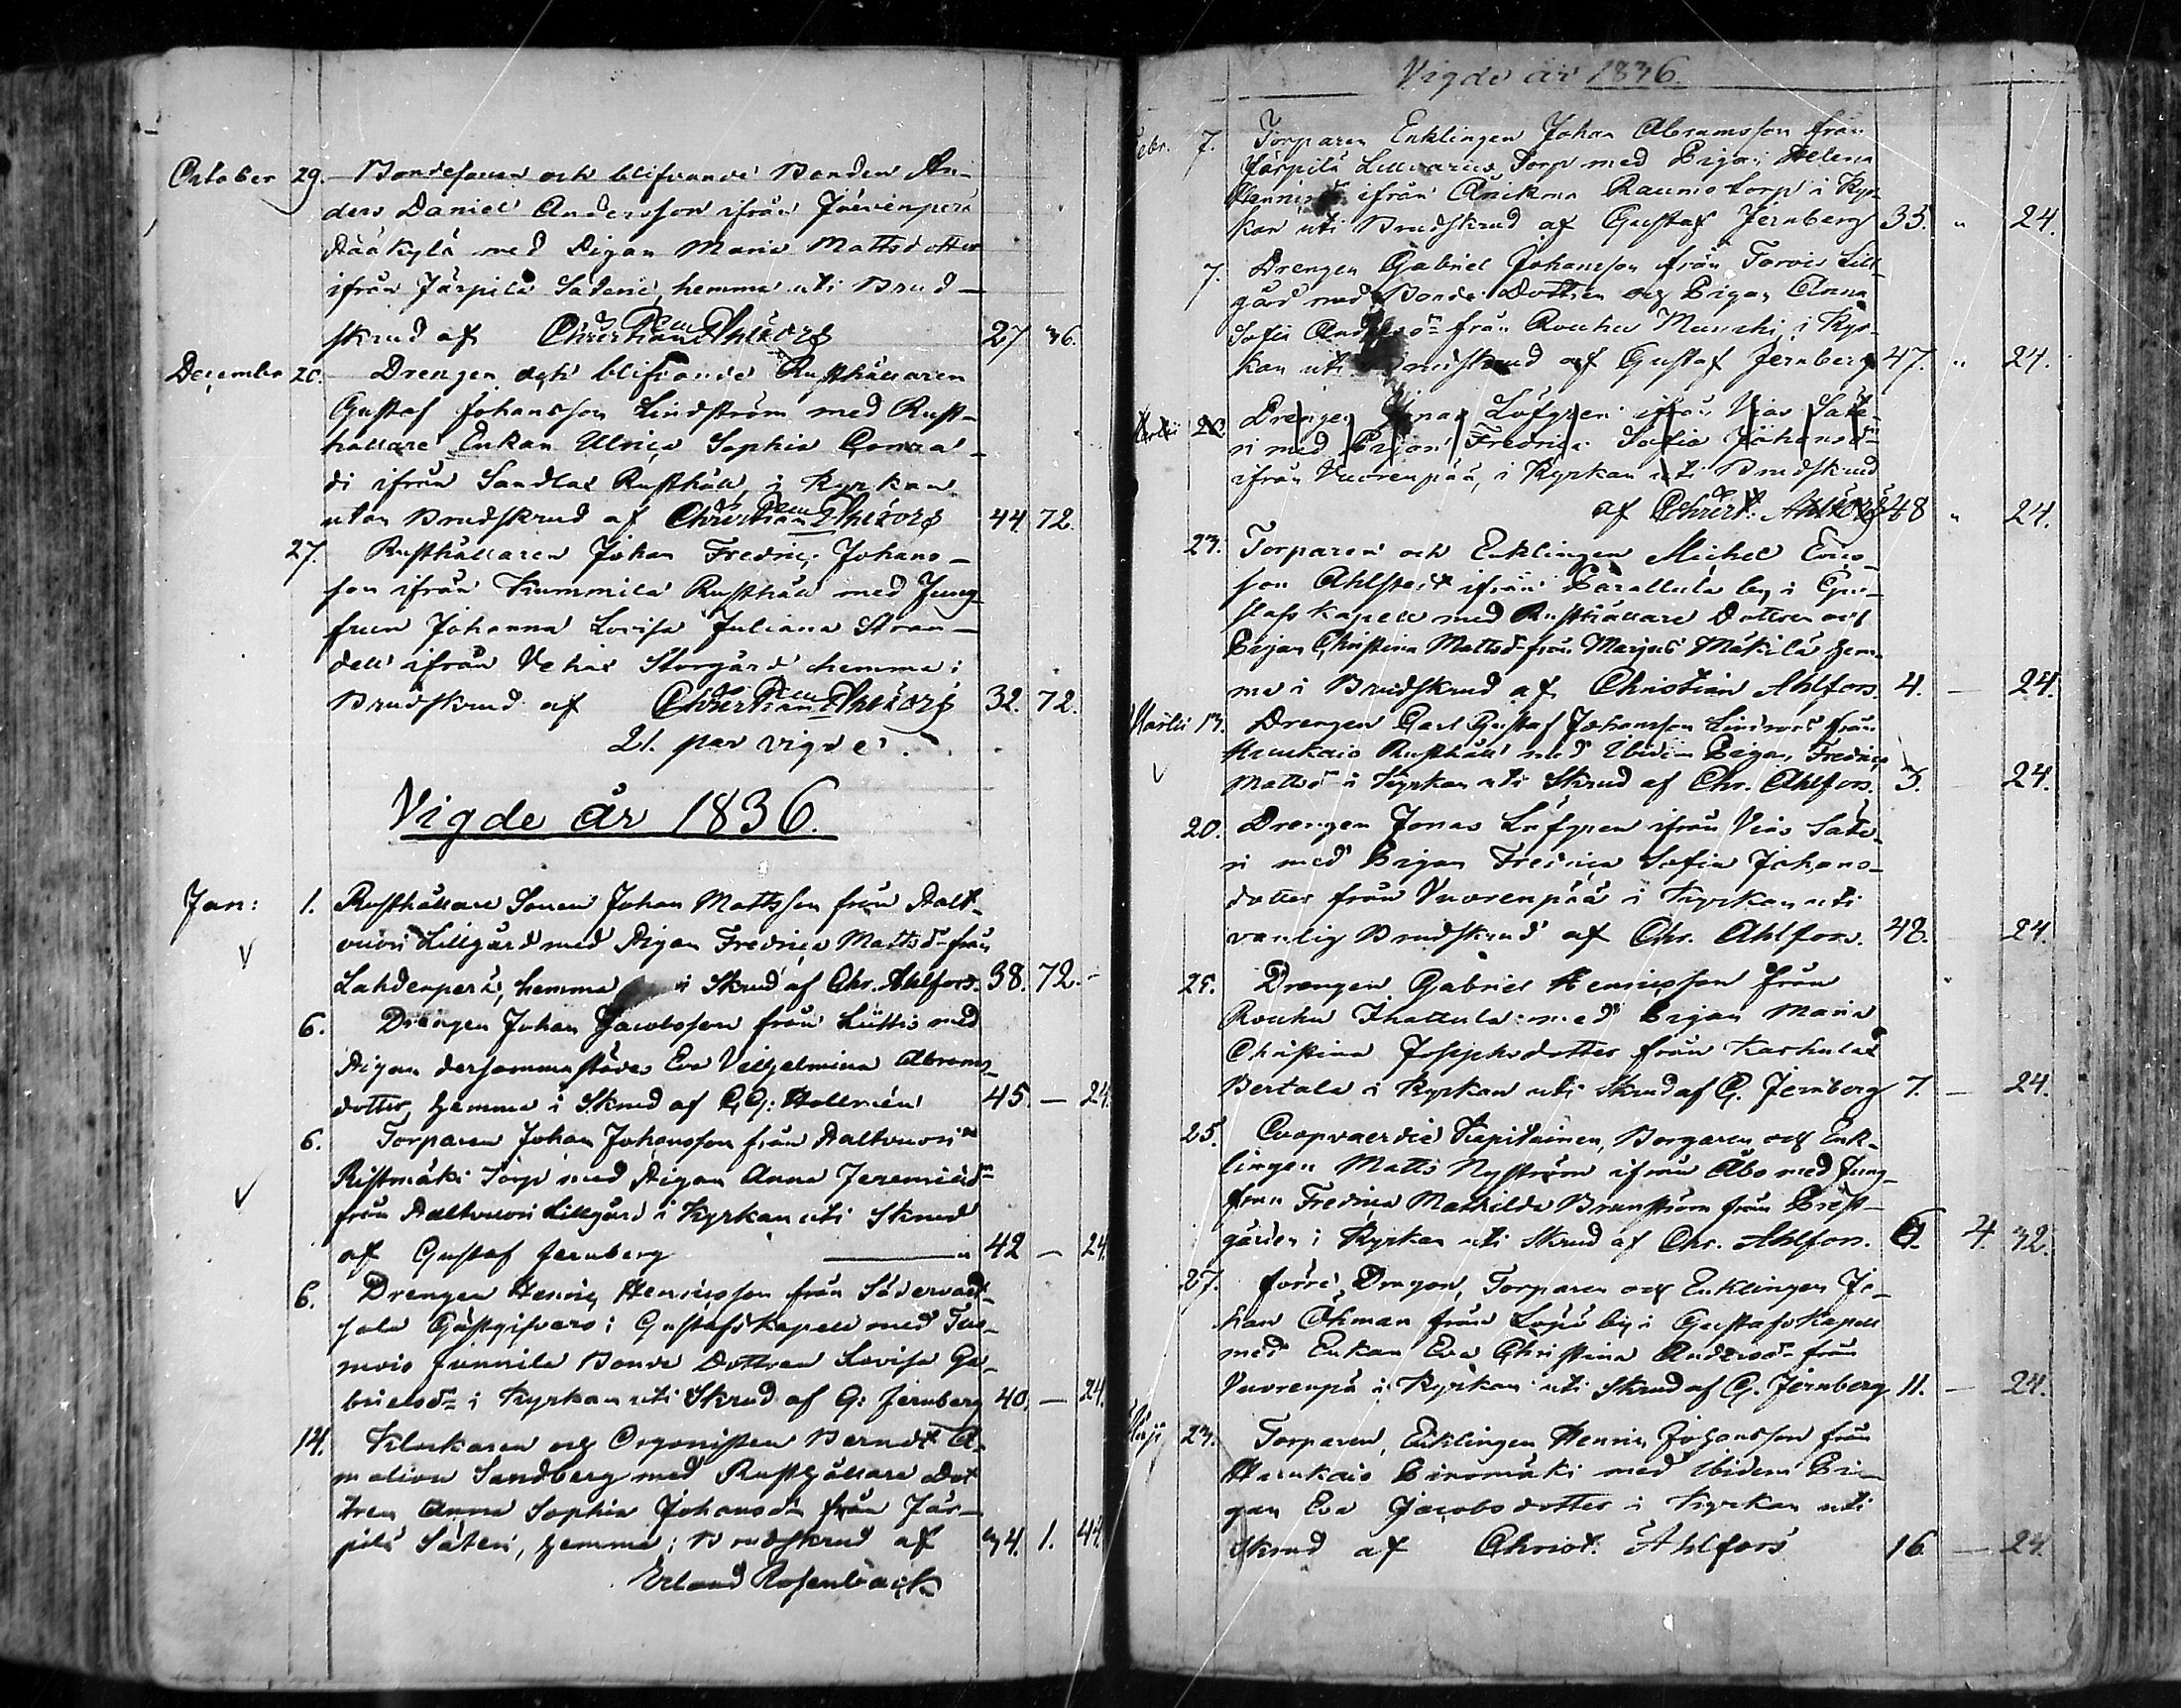 October 29. Bondesonen och blifvande Bonden An-
ders Daniel Andersson ifrån Järvenperä
Dääkylä med Pigan Maria Mattsdotter
ifrån Järpilä Säteri, hemma uti Brud-
skrud af Christian Ahlfors 27 36.
December 20. Drengen och blifvande Rusthållaren
Gustaf Johansson Lindström med Rust-
hållare Enkan Ulrica Sophia Conra-
di ifrån Sandlax Rusthåll, i Kyrkan
utan Brudskrud af Christian Ahlfors 44 72.
27. Rusthållaren Johan Fredric Johans-
son ifrån Kummila Rusthåll med Jung-
frun Johanna Lovisa Juliana Stran-
dell ifrån Vehax Storgård hemma i
Brudskrud af Christian Ahlfors 32. 72.
21. par vigde.
Vigde år 1836.
Jan: 1. Rusthållare Sonen Johan Mattsson från Aalt-
vuori Lillgård med Pigan Fredrica Mattsdr från
Lahdenperä, hemma i Skrud af Chr. Ahlfors. 38. 72.-
6. Drengen Johan Jacobsson från Lüttis med
Pigan dersammastädes Eva Vilhelmina Abrams-
dotter, hemma i Skrud af C.G: Hallmén 45. — 24.
6. Torparen Johan Johansson från Aaltvuori
Ristmäki Torp med Pigan Anna Jeremiædr
från Aaltvuori Lillgård i Kyrkan uti Skrud
af Gustaf Jernberg 42 — 24.
6. Drengen Henric Henricsson från Södervart-
sala Gästgifvars i Gustafs Kapell med Tur-
mois Junnila Bonde Dottren Lovisa Ga-
brielsdr i Kyrkan uti Skrud af G: Jernberg 40. — 24.
14. Klockaren och Organisten Berndt A-
malion Sandberg med Rusthållare Dot
tren Anna Sophia Johansdr från Jär-
pilä Säteri, hemma i Brudskrud af 34. 1. 44.
Erland Rosenback
Vigde år 1836.
Febr. 7. Torparen Enklingen Johan Abramsson från
Järpilä Lillvarius Torp med Pigan Helena
ifrån Anikma Raumo torp i Kyr-
kan uti Brudskrud af Gustaf Jernberg 33. " 24.
7. Drengen Gabriel Johansson från Tarvis Lill-
gård med Bonde Dottren och Pigan Anna
Sofia Andersdr från Rouhu Munshi, i Kyr-
kan uti Brudskrud af Gustaf Jernberg 47. " 24.
Martii 20 Drengen Jonas Löfgren ifrån Vias Säte-
ri med Pigan Fredrica Sofia Johansdr
ifrån Vuorenpää, i Kyrkan uti Brudskrud
af Christ. Ahlfors 48 " 24.
23. Torparen och Enklingen Michel Erics-
son Ahlstedt ifrån Parattula by i Gu-
stafs Kapell med Rusthållare Dottren och
Pigan Christina Mattsdr från Marjais Mäkilä hem-
ma i Brudskrud af Christian Ahlfors. 4. — 24.
Martii 13. Drengen Carl Gustaf Johansson Lindroos från
Haukais Rusthåll med Ibidem Pigan Fredrica
Mattsdr i Kyrkan uti Skrud af Chr. Ahlfors. 5. 24.
20. Drengen Jonas Löfgren ifrån Vias Säte-
ri med Pigan Fredrica Sofia Johans-
dotter från Vuorenpää i Kyrkan uti
vanlig Brudskrud af Chr. Ahlfors. 48. 24.
25. Drengen Gabriel Henricsson från
Rouhu Ihattula med Pigan Maria
Christina Josephsdotter från Karhula
Bertala i Kyrkan uti Skrud af G. Jernberg 7. — 24.
25. Coopvaerdie Kapitainen, Borgaren och Enk-
lingen Matts Nyström ifrån Åbo med Jung-
frun Fredrica Mathilda Brunström från Prest-
gården i Kyrkan uti Skrud af Chr. Ahlfors. 9. 4. 32.
27. förre Dragon, Torparen och Enklingen Jo-
han Öhman från Lopo by i Gustafs Kapell
med Enkan Eva Christina Andersdr från
Vuorenpä i Kyrkan uti Skrud af G. Jernberg 11. — 24.
Maji 23. Torparen, Enklingen Henric Johansson från
Haukais Pinomäki med Ibidem Pi-
gan Eva Jacobsdotter i Kyrkan uti
Skrud af Christ. Ahlfors 16 — 24.